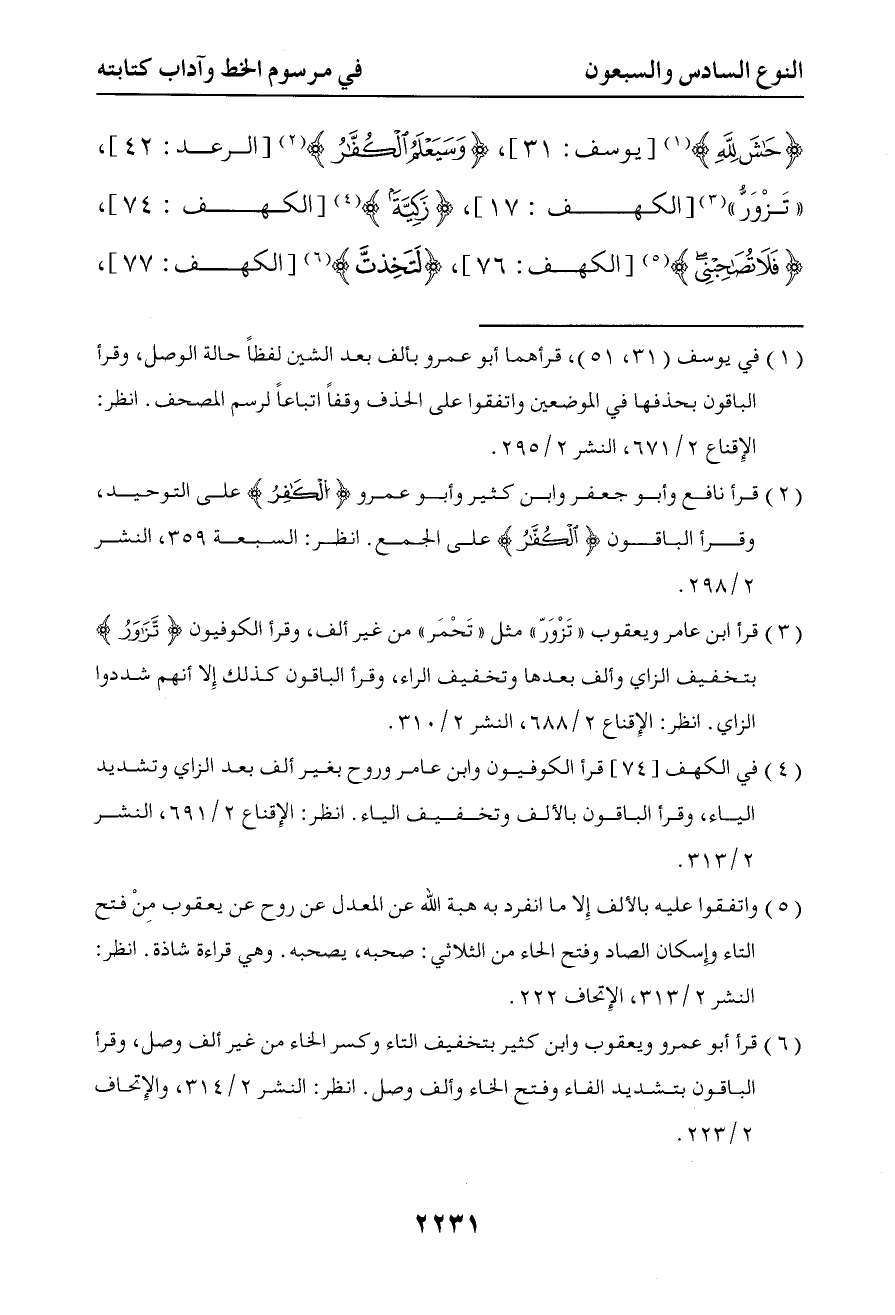 النوع السادس والسبعون في مرسوم الخط وآداب كتابته
﴿حَٰشَ لِلَّهِ﴾(١) [يوسف: ٣١]، ﴿وَسَيَعْلَمُ ٱلْكُفَّٰرُ﴾(٢) [الرعد: ٤٢]،
«تَزْوَرُّ»(٣) [الكهف: ١٧]، ﴿زَكِيَّةَۢ﴾(٤) [الكهف: ٧٤]،
﴿فَلَا تُصَٰحِبْنِى﴾(٥) [الكهف: ٧٦]، ﴿لَتَخِذتَّ﴾(٦) [الكهف: ٧٧]،
(١) في يوسف (٣١، ٥١)، قرأهما أبو عمرو بألف بعد الشين لفظاً حالة الوصل، وقرأ
الباقون بحذفها في الموضعين واتفقوا على الحذف وقفاً اتباعاً لرسم المصحف. انظر:
الإقناع ٢/ ٦٧١، النشر ٢/ ٢٩٥.
(٢) قرأ نافع وأبو جعفر وابن كثير وأبو عمرو ﴿الْكَٰفِرُ﴾ على التوحيد،
وقرأ الباقون ﴿ٱلْكُفَّٰرُ﴾ على الجمع. انظر: السبعة ٣٥٩، النشر
٢/ ٢٩٨.
(٣) قرأ ابن عامر ويعقوب «تَزْوَرّ» مثل «تَحْمَر» من غير ألف، وقرأ الكوفيون ﴿تَّزَٰوَرُ﴾
بتخفيف الزاي وألف بعدها وتخفيف الراء، وقرأ الباقون كذلك إلا أنهم شددوا
الزاي. انظر: الإقناع ٢/ ٦٨٨، النشر ٢/ ٣١٠.
(٤) في الكهف [٧٤] قرأ الكوفيون وابن عامر وروح بغير ألف بعد الزاي وتشديد
الياء، وقرأ الباقون بالألف وتخفيف الياء. انظر: الإقناع ٢/ ٦٩١، النشر
٢/ ٣١٣.
(٥) واتفقوا عليه بالألف إلا ما انفرد به هبة الله عن المعدل عن روح عن يعقوب منْ فتح
التاء وإسكان الصاد وفتح الحاء من الثلاثي: صحبه، يصحبه. وهي قراءة شاذة. انظر:
النشر ٢/ ٣١٣، الإتحاف ٢٢٢.
(٦) قرأ أبو عمرو ويعقوب وابن كثير بتخفيف التاء وكسر الخاء من غير ألف وصل، وقرأ
الباقون بتشديد الفاء وفتح الخاء وألف وصل. انظر: النشر ٢/ ٣١٤، والإتحاف
٢/ ٢٢٣.
٢٢٣١